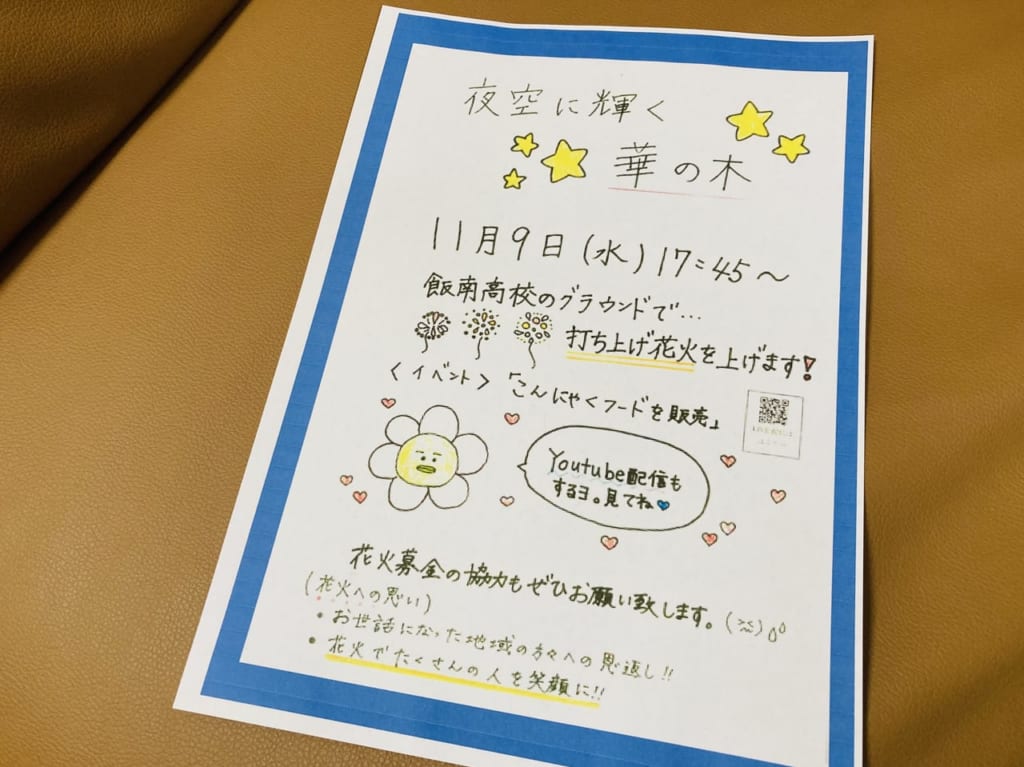 夜空に輝く
華の木
11月9日(水)17:45～
飯南高校のグラウンドで…
打ち上げ花火を上げます!
<イベント>「こんにゃくフードを販売」
Youtube配信も
するヨ。見てね
花火募金の協力もぜひお願い致します。
(花火への思い)
・お世話になった地域の方々への恩返し!!
・花火でたくさんの人を笑顔に!!